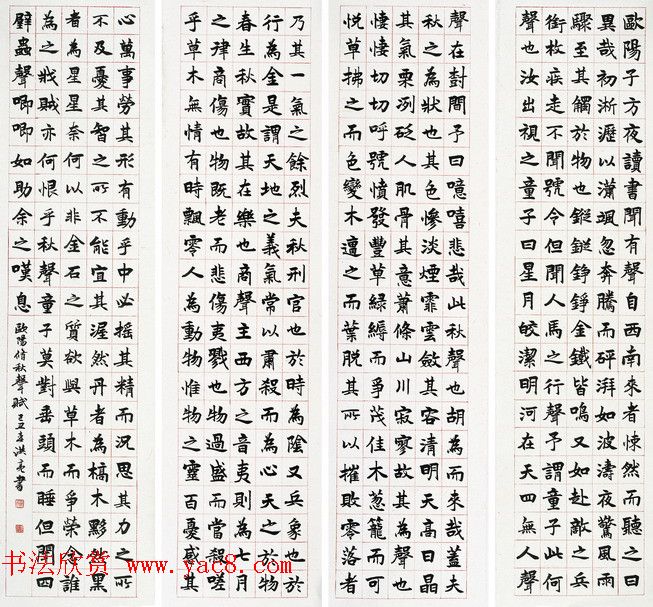 歐陽子方夜讀書聞有聲自西南來者悚然而聽之曰
異哉初淅瀝以瀟颯忽奔騰而砰湃如波濤夜驚風雨
驟至其觸於物也鏦鏦錚錚金鐵皆鳴又如赴敵之兵
銜枚疾走不聞號令但聞人馬之行聲予謂童子此何
聲也汝出視之童子曰星月皎潔明河在天四無人聲
聲在樹間予曰噫嘻悲哉此秋聲也胡為而來哉蓋夫
秋之為狀也其色慘淡煙霏雲斂其容清明天高日晶
其氣栗冽砭人肌骨其意蕭條山川寂寥故其為聲也
悽悽切切呼號憤發豐草綠縟而爭茂佳木葱籠而可
悅草拂之而色變木遭之而葉脫其所以摧敗零落者
乃其一氣之餘烈夫秋刑官也於時為陰又兵象也於
行為金是謂天地之義氣常以肅殺而為心天之於物
春生秋實故其在樂也商聲主西方之音夷則為七月
之律商傷也物既老而悲傷夷戮也物過盛而當殺嗟
乎草木無情有時飄零人為動物惟物之靈百憂感其
心萬事勞其形有動乎中必搖其精而況思其力之所
不及憂其智之所不能宜其渥然丹者為槁木黟然黑
者為星星奈何以非金石之質欲與草木而爭榮念誰
為之戕賊亦何恨乎秋聲童子莫對垂頭而睡但聞四
壁蟲聲唧唧如助余之嘆息
歐陽脩秋聲賦己丑年洪亮書
书法欣赏 www.yac8.com